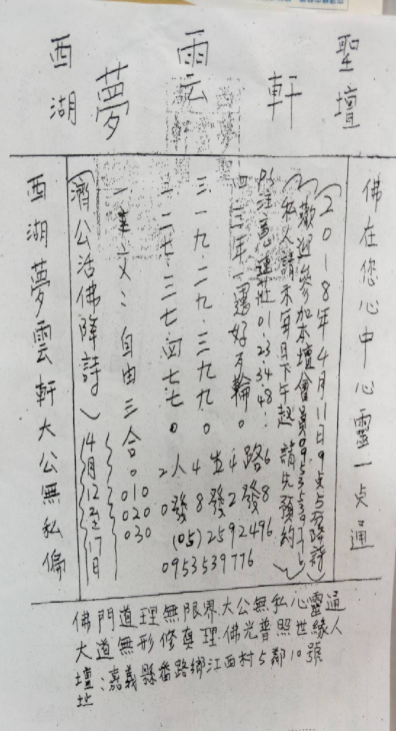 西湖夢雲軒聖壇
佛在您心中心靈一点通
(2018年4月11日9点5分降詩)
歡迎參加本壇會員0953539776
私人請求每日下午起 請先預約
P.S.注意 01.23.34.48.
四.三年一運好万輪。路發
三.一九.二九.三九九。
二.二七.三七.四七七。人發
一.主文:自由三合。
010
020
030
20
48
42
68
(05)2592496
0953539776
(濟公活佛降詩)
4月12至17日
西湖夢雲軒大公無私偏
佛門道理無限界大公無私心靈通
大道無形修真理.佛光普照世緣人
壇址:嘉義縣番路鄉江西村5鄰10號